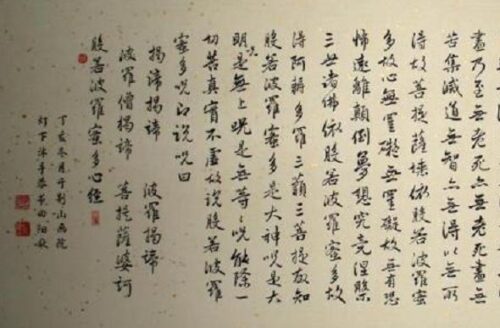 盡乃至無老死亦無老死盡無
苦集滅道無智亦無得以無所
得故菩提薩埵依般若波羅蜜
多故心無罣礙無罣礙故無有恐
怖遠離顛倒夢想究竟涅槃
三世諸佛依般若波羅蜜多故
得阿耨多羅三藐三菩提故知
般若波羅蜜多是大神咒是大
明咒是無上咒是無等等咒能除一
切苦真實不虛故說般若波羅
蜜多咒即說咒曰
揭諦揭諦 波羅揭諦
波羅僧揭諦 菩提薩婆訶
般若波羅蜜多心經
丁亥冬月于荆山畫院
灯下沐手恭